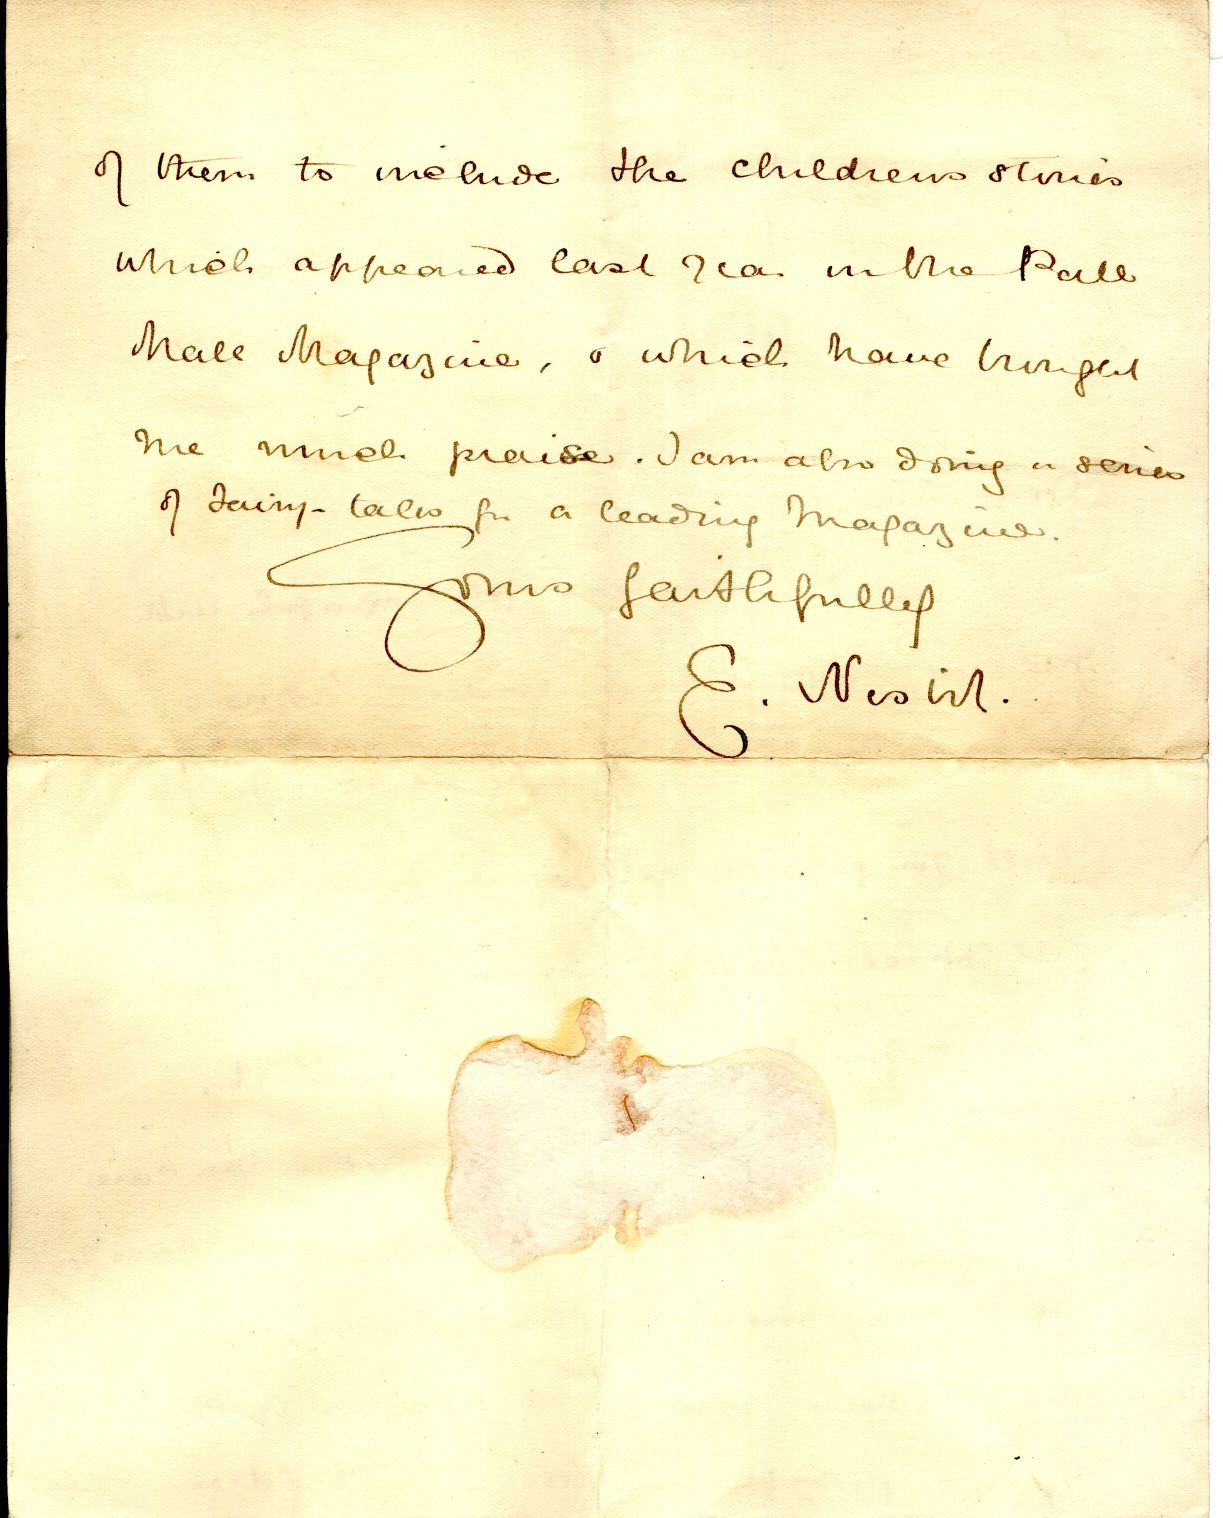 of them to include the childrens stories
which appeared last year in the Pall
Mall Magazine, & which have brought
me much praise. I am also doing a series
of fairy-tales for a leading Magazine.
Yours faithfully
E. Nesbit.